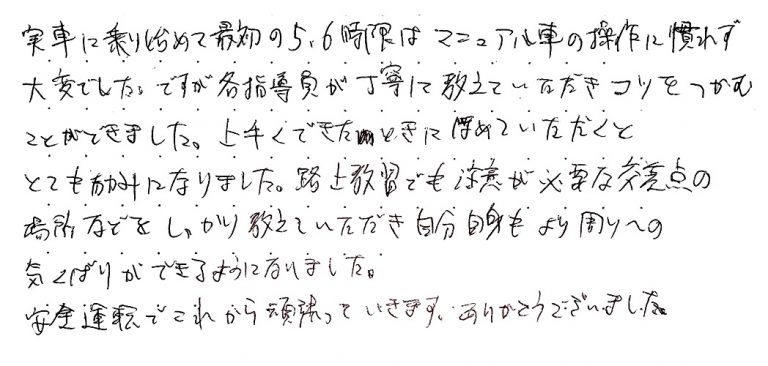 実車に乗り始めて最初の5、6時限はマニュアル車の操作に慣れず
大変でした。ですが各指導員が丁寧に教えていただきコツをつかむ
ことができました。上手くできたときに褒めていただくと
とても励みになりました。路上教習でも注意が必要な交差点の
場所などをしっかり教えていただき自分自身もより周りへの
気くばりができるようになりました。
安全運転でこれから頑張っていきます。ありがとうございました。